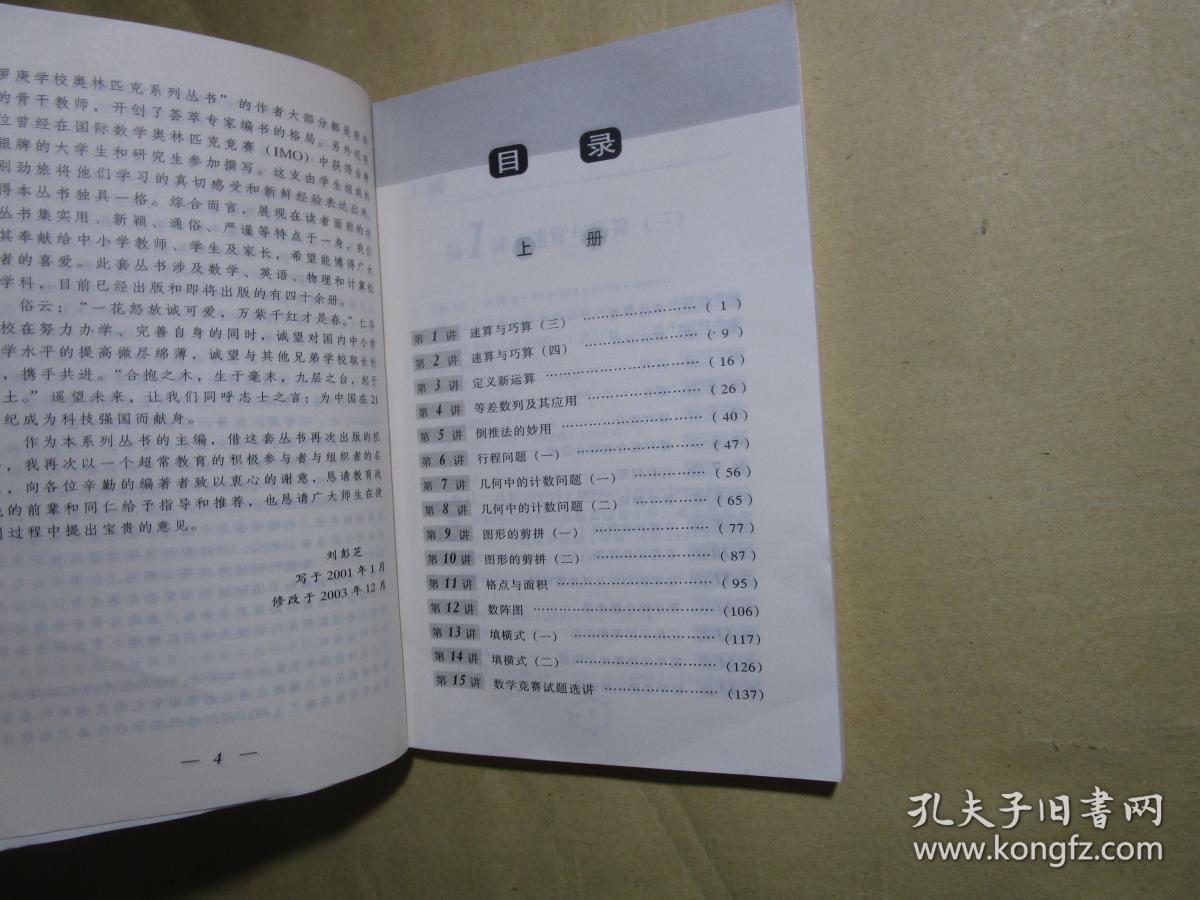 罗庚学校奥林匹克系列丛书”的作者大部分都是
的骨干教师，开创了荟萃专家编书的格局。另外还有
位曾经在国际数学奥林匹克竞赛（IMO）中获得金牌
银牌的大学生和研究生参加撰写。这支由学生组成的
别劲旅将他们学习的真切感受和新鲜经验表达出来，
得本丛书独具一格。综合而言，展现在读者面前的这
丛书集实用、新颖、通俗、严谨等特点于一身，我们
其奉献给中小学教师、学生及家长，希望能博得广大
者的喜爱。此套丛书涉及数学、英语、物理和计算机
学科，目前已经出版和即将出版的有四十余册。
俗云：“一花怒放诚可爱，万紫千红才是春。”仁华
校在努力办学、完善自身的同时，诚望对国内中小学
学水平的提高微尽绵薄，诚望与其他兄弟学校取长补
，携手共进。“合抱之木，生于毫末，九层之台，起于
土。”遥望未来，让我们同呼志士之言：为中国在21
纪成为科技强国而献身。
作为本系列丛书的主编，借这套丛书再次出版的机
，我再次以一个超常教育的积极参与者与组织者的名
，向各位辛勤的编著者致以衷心的谢意，恳请教育战
的前辈和同仁给予指导和推荐，也恳请广大师生在使
过程中提出宝贵的意见。
刘彭芝
写于2001年1月
修改于2003年12月
— 4 —
目 录
上 册
第1讲 速算与巧算（三） ……………………（1）
第2讲 速算与巧算（四） ……………………（9）
第3讲 定义新运算 ……………………（16）
第4讲 等差数列及其应用 ……………………（26）
第5讲 倒推法的妙用 ……………………（40）
第6讲 行程问题（一） ……………………（47）
第7讲 几何中的计数问题（一） ……………………（56）
第8讲 几何中的计数问题（二） ……………………（65）
第9讲 图形的剪拼（一） ……………………（77）
第10讲 图形的剪拼（二） ……………………（87）
第11讲 格点与面积 ……………………（95）
第12讲 数阵图 ……………………（106）
第13讲 填横式（一） ……………………（117）
第14讲 填横式（二） ……………………（126）
第15讲 数学竞赛试题选讲 ……………………（137）
孔夫子旧书网
www.kongfz.com